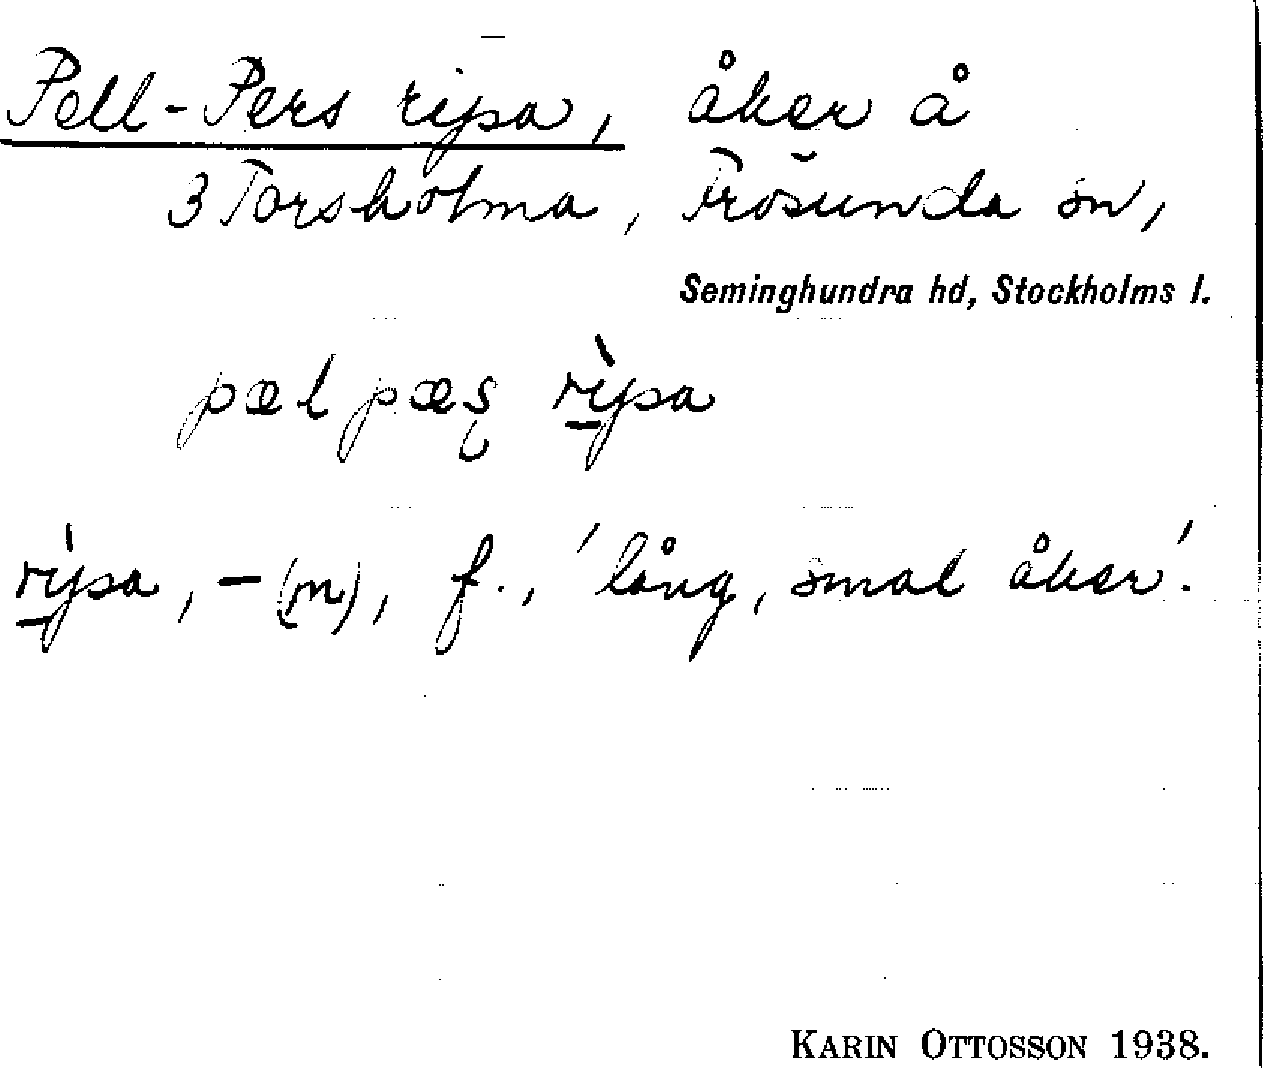 Pell-Pers ripsa, åker å
3 Torsholma, Frösunda sn,
Seminghundra hd, Stockholms l.
pæl pæs rì̱psa
rì̱psa, -(n), f., 'lång, smal åker'.
KARIN OTTOSSON 1938.